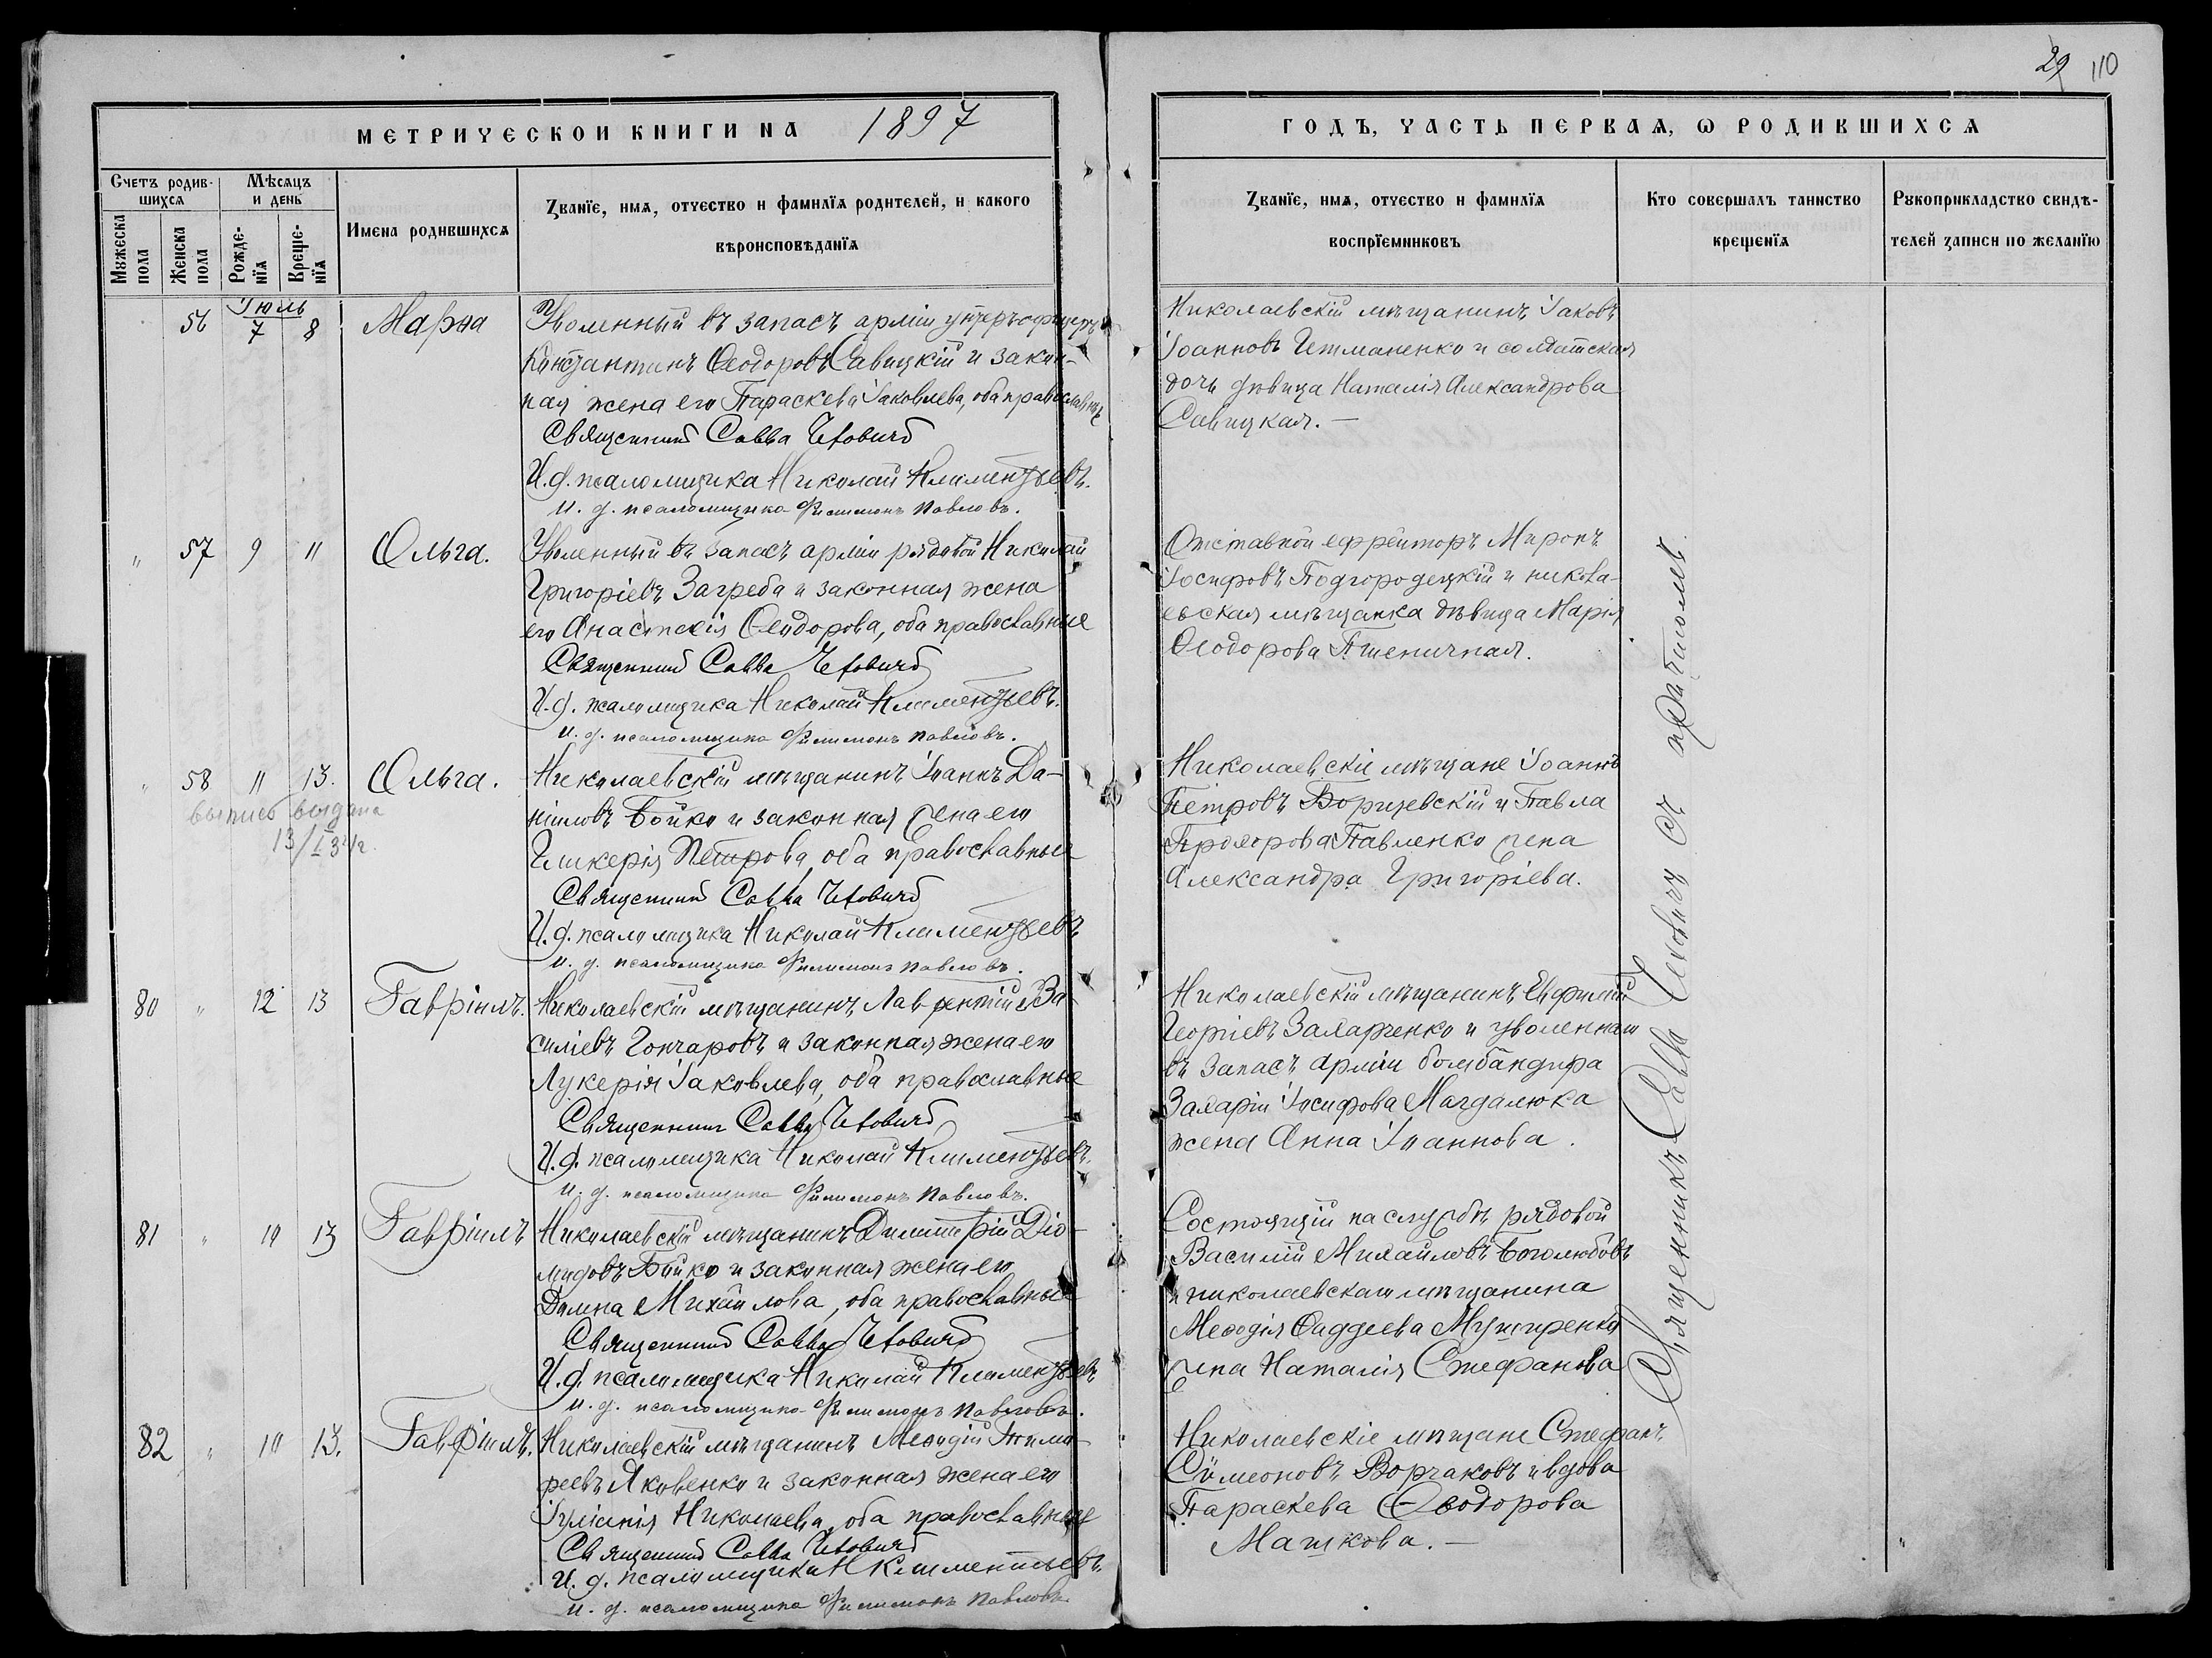 29 110
МЕТРИЧЕСКОЙ КНИГИ НА 1897
ГОДЪ, ЧАСТЬ ПЕРВАЯ, Ѡ РОДИВШИХСЯ
Счетъ родив-
шихся
Мѣсяцъ
и день
Мꙋжеска
пола
Женска
пола
Рожде-
нїя
Креще-
нїя
Имена родившихся
Званїе, имя, отчество и фамилїя родителей, и какого
вѣроисповѣданїя
Званїе, имя, отчество и фамилїя
воспрїемниковъ
Кто совершалъ таинство
крещенїя
Рꙋкоприкладство свидѣ-
телей записи по желанїю
Іюль
56 7 8 Марѳа
Уволенный въ запасъ арміи унтеръ-офицеръ
Константинъ Ѳеодоровъ Савицкій и закон-
ная жена его Параскева Іаковлева, оба православные
Священникъ Савва Чехович
И. д. псаломщика Николай Климентьевъ.
и. д. псаломщика Филимонъ Павловъ.
Николаевскій мѣщанинъ Іаковъ
Іоанновъ Гетманенко и солдатская
дочь дѣвица Наталія Александрова
Савицкая. —
" 57 9 11 Ольга.
Уволенный въ запасъ арміи рядовой Николай
Григоріевъ Загреба и законная жена
его Анастасія Ѳеодорова, оба православные
Священникъ Савва Чехович
И. д. псаломщика Николай Климентьевъ.
и. д. псаломщика Филимонъ Павловъ.
Отставной ефрейторъ Миронъ
Іосифовъ Подгородецкій и никола-
евская мѣщанка дѣвица Марія
Ѳеодорова Пшеничная.
" 58 11 13. Ольга.
выпись выдана
13/I 34 г.
Николаевскій мѣщанинъ Іоаннъ Да-
ніиловъ Бойко и законная жена его
Гликерія Петрова, оба православные
Священникъ Савва Чехович
И. д. псаломщика Николай Климентьевъ
и. д. псаломщика Филимонъ Павловъ.
Николаевскіе мѣщане Іоаннъ
Петровъ Борщевскій и Павла
Прохорова Павленко жена
Александра Григоріева.
80 " 12 13 Гавріилъ.
Николаевскій мѣщанинъ Лаврентій Ва-
силіевъ Гончаровъ и законная жена его
Лукерія Іаковлева, оба православные
Священникъ Савва Чехович
И. д. псаломщика Николай Климентьевъ.
и. д. псаломщика Филимонъ Павловъ.
Николаевскій мѣщанинъ Евфимій
Георгіевъ Захарченко и уволеннаго
въ запасъ арміи бомбандира
Захаріи Іосифова Магдалюка
жена Анна Іоаннова.
81 " 10 13 Гавріилъ
Николаевскій мѣщанинъ Димитрій Діо-
мидовъ Бойко и законная жена его
Домна Михайлова, оба православные
Священникъ Савва Чехович
И. д. псаломщика Николай Климентьевъ
и. д. псаломщика Филимонъ Павловъ.
Состоящій на службѣ рядовой
Василій Михайловъ Боголюбовъ
и николаевскаго мѣщанина
Меѳодія Ѳаддеева
жена Наталія Стефанова
82 " 10 13. Гавріилъ.
Николаевскій мѣщанинъ Меѳодій Тимо-
реевъ Яковенко и законная жена его
Іуліанія Николаева, оба православные
Священникъ Савва Чехович
И. д. псаломщика Н Климентьевъ.
и. д. псаломщика Филимонъ Павловъ.
Николаевскіе мѣщане Стефанъ
Сѵмеоновъ Ворчаковъ и вдова
Параскева Ѳеодорова
Машкова. —
Священникъ Савва Чеховичъ съ причтомъ